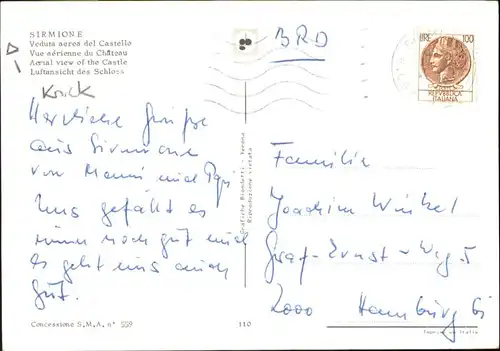 SIRMIONE
Veduta aerea del Castello
Vue aérienne du Château
Aerial view of the Castle
Luftansicht des Schloss
Herzliche Grüße
aus Sirmione
von Mammi und Papi
Uns gefällt es
immer noch gut und
es geht uns auch
gut.
Concessione S.M.A. n° 559
110
Grafiche Biondetti - Verona
Riproduzione vietata
BRD
LIRE 100
REPVBBLICA
ITALIANA
Familie
Joachim Winkel
Graf-Ernst-Weg 5
2000 Hamburg 61
Italia